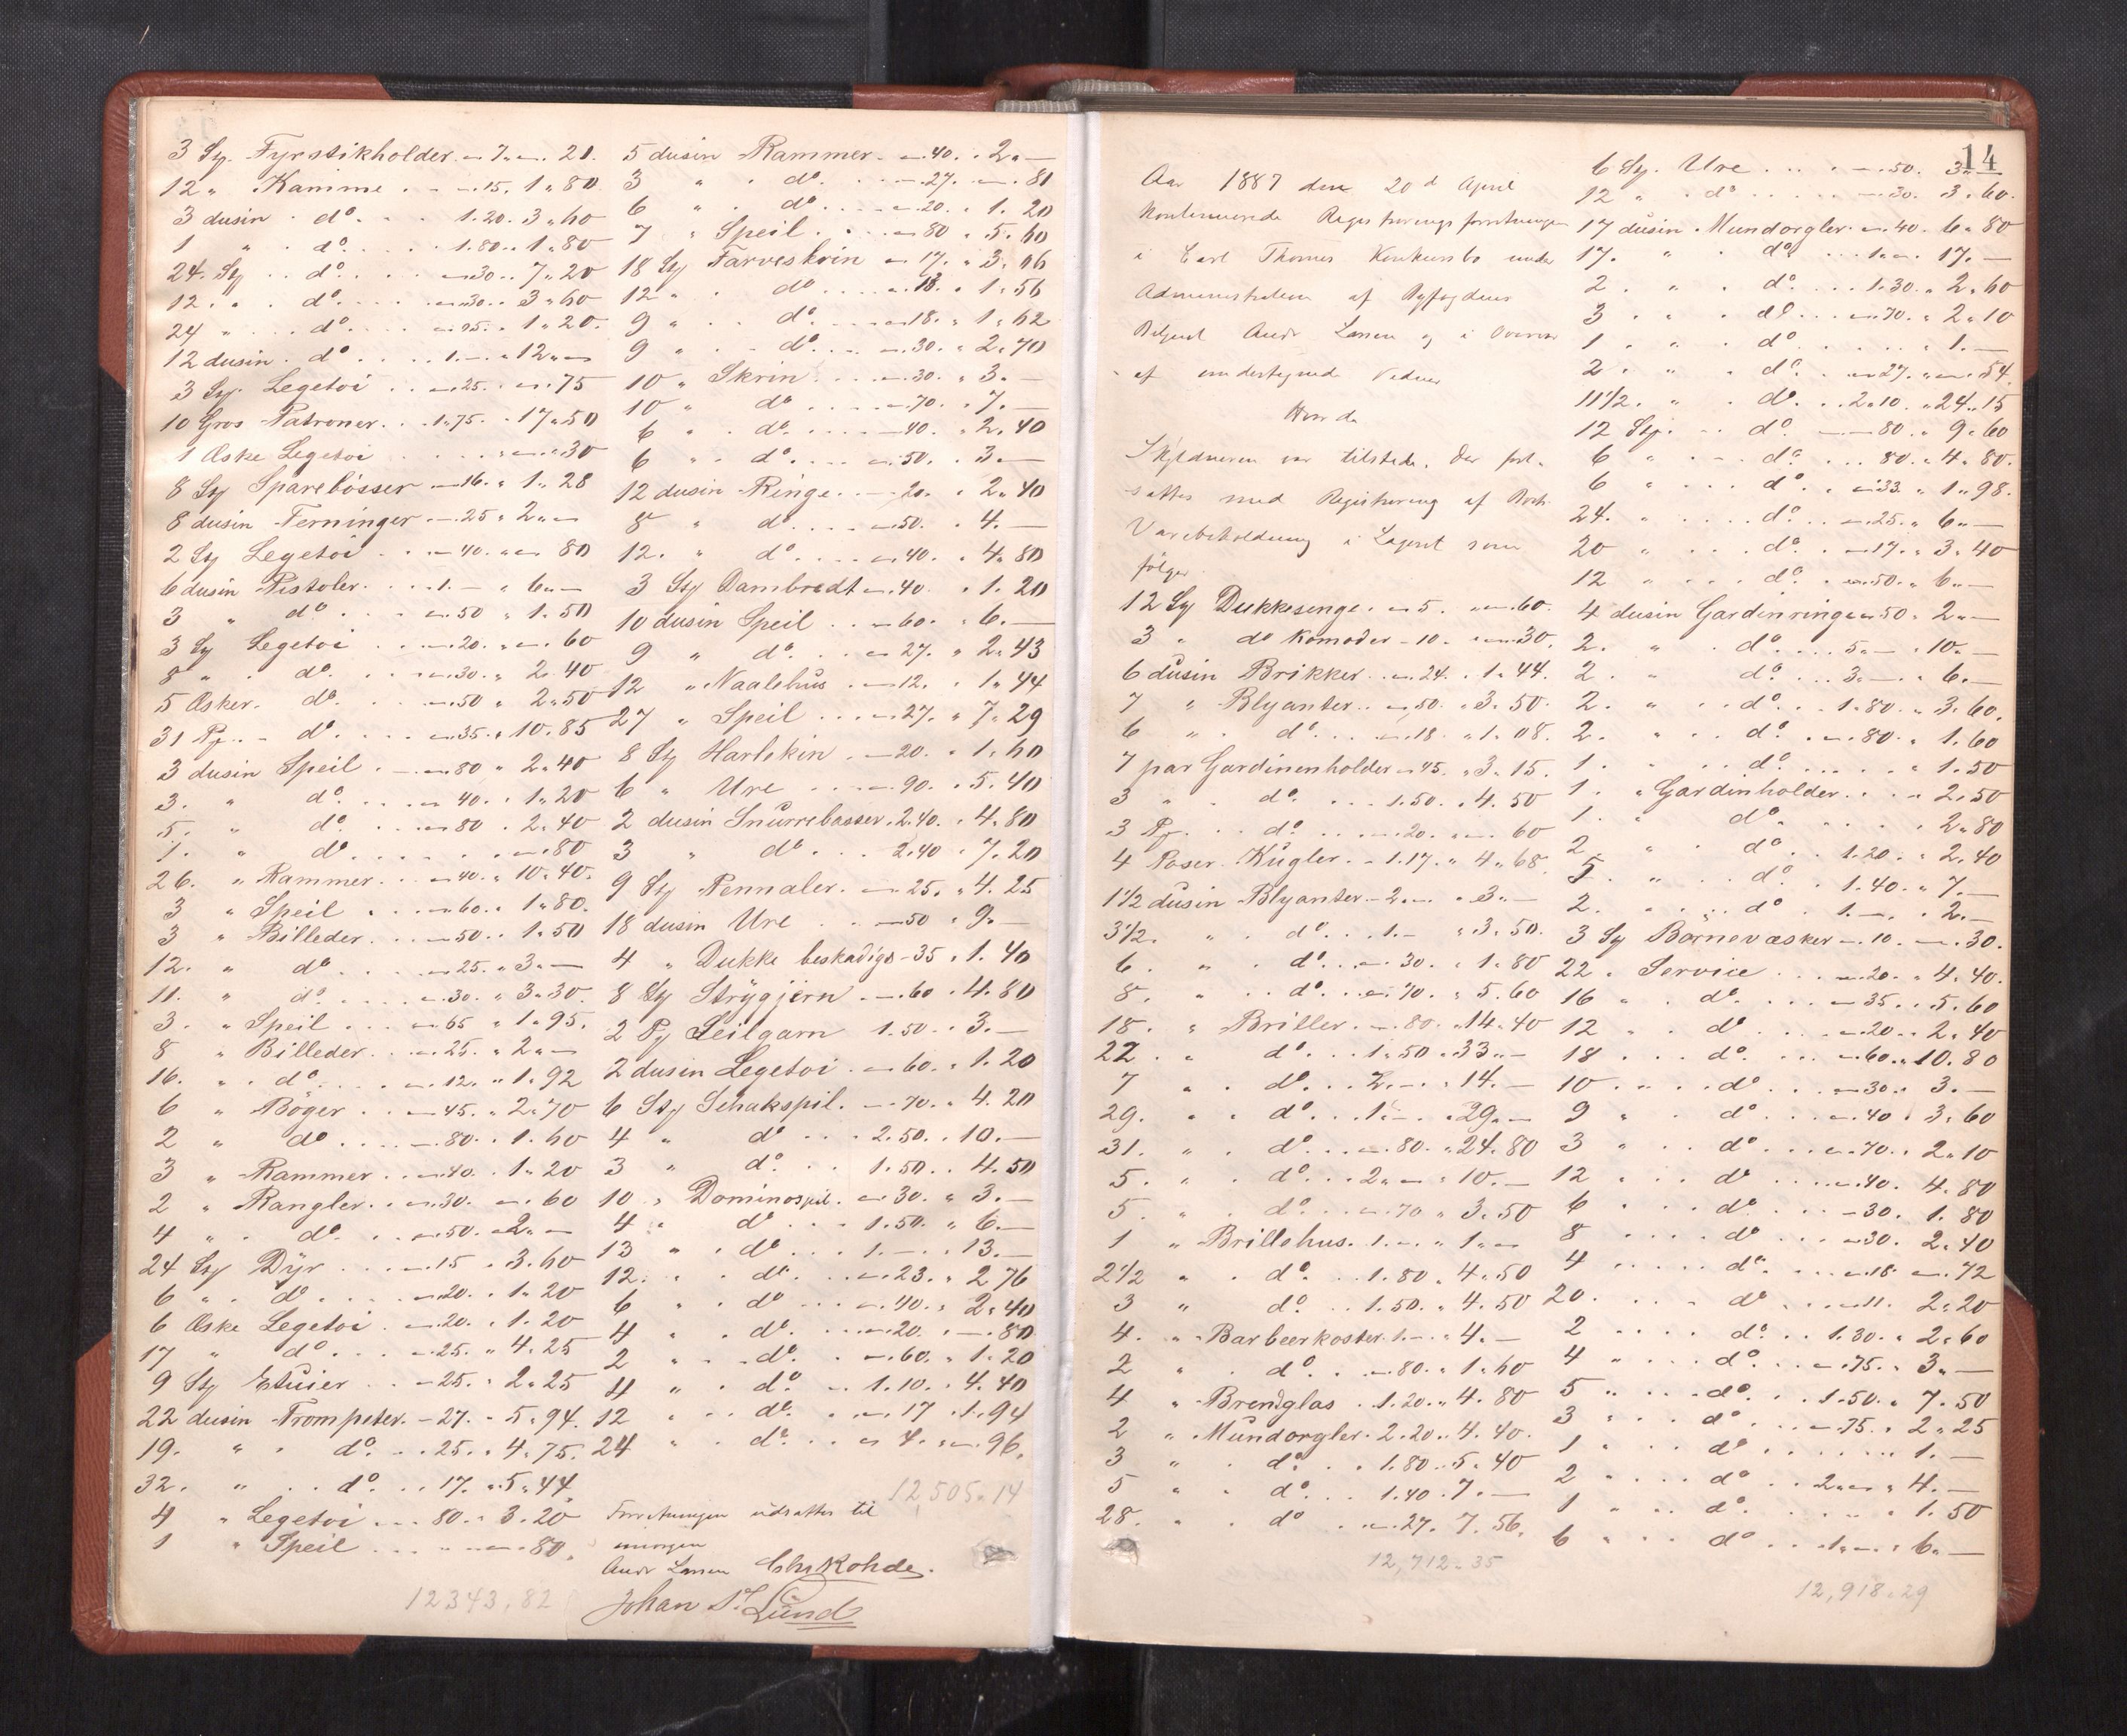 3 Sty. Fyrstikholder „ 7 „ „ 21.
12 „ Kamme . . „ 15. 1 „ 80
3 dusin . do . . . 1.20. 3 „ 60
1 „ . do . . . 1.80 . 1 „ 80
24. Sty . do . . . „ 30 . . 7 „ 20
12. „ . do . . . „ 30 . . 3 „ 60
24 „ . do . . . „ 05. „ 1 „ 20.
12 dusin . do . . . 1.— „ 12 „ —
3 Sty. Legetöi . . „ 25. „ 75
10 Gros Patroner . . 1 „ 75. . 17 „ 50
1 Æske Legetöi . . . . „ 30
8 Sty Sparebösser — 16. „ 1 „ 28
8 dusin Terninger — 25 „ 2 „ —
2 Sty Legetöi . . — 40. „ 80
6 dusin Pistoler . . . 1.— „ 6 „ —
3 „ do . . . „ 50 „ 1. 50
3 Sty Legetöi . . „ 20. „ 60
8 „ . do . . . „ 30. „ 2. 40
5 Æsker. do . . . „ 50 „ 2 „ 50
31 Pf. . do . . . „ 35. „ 10. 85
3 dusin Speil . „ 80 „ 2 „ 40
3. „ do . . . „ 40. „ 1 „ 20
5. „ do . . . „ 80 . 2. 40
1. „ do . . . . „ 80
26. „ Rammer . . „ 40. „ 10 „ 40.
3 „ Speil . . „ 60. „ 1 „ 80.
3 „ Billeder . . „ 50 . . 1 „ 50
12. „ do . . . „ 25. „ 3 „ —
11. „ do . . . „ 30. „ 3 „ 30.
3. „ Speil . . . „ 65 „ 1 „ 95.
8 „ Billeder . . „ 25. „ 2 „ —
16. „ . do . . . „ 12. „ 1 „ 92
6 „ Böger . . „ 45. „ 2 „ 70
2 „ do . . . „ 80. . 1. 60
3 „ Rammer . . „ 40. . 1 „ 20
2 „ Rangler . . „ 30. „ 60
4 „ . do . . „ 50. „ 2 „ —
24 Sty Dyr . . . „ 15 . 3. 60
6 „ . do . . . „ 20. . 1 „ 20
6 Æske Legetöi . „ 20. . 1. 20
17 „ do . . . „ 25. „ 4. 25
9 Sty Etuier . . „ 25. . 2 „ 25
22 dusin Trompeter. — 27. „ 5 „ 94.
19. „ . do . . 25. . 4 „ 75.
32. „ . do . . 17. . 5 „ 44
4 „ Legetöi . . . 80. . 3. 20
1 „ Speil . . . „ „ 80.
12343,82
5 dusin Rammer . „ 40. . 2 „ —
3 „ . do . . . „ 27. „ 81
6 „ . do . . . „ 20. . 1. 20
7 „ Speil . . . „ 80 „ 5. 60
18 Sty Farveskrin „ 17. „ 3. 06
12 „ . do . . . „ 13. . 1. 56
9 „ . do . . . „ 18. „ 1. 62
9 „ . do . . . „ 30. „ 2. 70
10 „ Skrin . . . „ 30. „ 3. —
10 „ do . . . . „ 70. „ 7. —
6 „ . do . . . „ 40. . 2. 40
6 „ . do . . . „ 50. . 3. —
12 dusin Ringe . . — 20. „ 2. 40
8 „ do . . . „ 50. . 4. —
12. „ do . . . „ 40. . 4. 80
3 Sty Dambredt „ 40. . 1. 20
10 dusin Speil . . „ 60. „ 6. —
9 „ do . . . „ 27. „ 2. 43
12 „ Naalehus . — 12. . 1 „ 44
27 „ Speil . . . „ 27. „ 7. 29
8 Sty Harlekin . — 20. . 1. 60
6 „ Ure . . . „ 90. . 5. 40
2 dusin Snurrebasser. 2.40. . 4. 80
3 „ do . . . 2.40 . 7. 20
9 Sty Pennaler . „ 25. „ 4. 25
18 dusin Ure . . „ 50 . 9. —
4 „ Dukke beskadigs — 35 . 1. 40
8 Sty Strygjern . „ 60 . 4. 80
2 Pf Seilgarn 1.50 . . 3. —
2 dusin Legetoi . „ 60. . 1. 20
6 Sty Schakspil. — 70. „ 4. 20
4 „ do . . . 2.50. . 10. —
3 „ do . . . 1.50. . 4. 50
10 „ Dominospil. „ 30. „ 3. —
4 „ do . . . 1.50. „ 6. —
13 „ . do . . . 1. — . . 13. —
12. . . do . . . „ 23. „ 2 76
6 „ . do . . . „ 40. „ 2. 40
4 „ . do . . . „ 20. . „ 80
2 „ . do . . „ 60. „ 1. 20
4 „ . do . . 1.10. . 4. 40
12 „ . do . . „ 17 . 1. 94
24 „ . do . . „ 4. „ 96.
12,505.14
Forretningen udsattes til
imorgen
Andr Larsen Chr Rohde.
Johan St Lund
14
Aar 1887 den 20d April
Kontinuerede Registreringsforretningen
i Carl Thomes Konkursbo under
Administration af Byfogdens
Fuldmægtig Andr Larsen og i Overvær
af undertegnede Vidner
Hvorda
Skyldneren var tilstede. Der fort-
sattes med Registrering af Boets
Varebeholdning i Lageret som
følger
12 Sty Dukkesenge . „ 5. „ 60.
3 „ do Komoder — 10. „ 30.
6 dusin Brikker . . „ 24. . 1. 44.
7 „ Blyanter . . „ 50. „ 3. 50.
6 „ . do . . . „ 18. „ 1. 08.
7 par Gardinenholder „ 45. „ 3. 15.
3 „ . do . . . 1.50. „ 4. 50
3 Pf. . . do . . . „ 20. „ 60
4 Poser Kugler . . 1.17. „ 4 „ 68.
1 1/2 dusin Blyanter — 2 „ — „ 3 „ —
3 1/2. „ . do . . . 1. — „ 3. 50.
6. „ . do . . „ 30. . 1. 80
8. „ . do . . „ 70. „ 5. 60
18. „ Briller . „ 80. „ 14. 40
22. „ do . . . 1 „ 50 . 33 „ —
7 „ . do . . . 2. — . 14. —
29. „ . do . . . 1. — . 29 „ —
31. „ . do . . „ 80. „ 24. 80
5. „ . do . . . 2 „ — . 10. —
5. „ . do . . . „ 70 „ 3. 50
1 „ Brillehus. 1. — „ 1 „ —
2 1/2 „ . do . . 1.80. „ 4. 50
3 „ do . . 1.50. „ 4. 50
4. „ Barbeerkoster. 1. — . 4. —
2 „ . do . . „ 80. „ 1. 60
4 „ Brendglas . 1.20. „ 4. 80
2 „ Mundorgler. 2.20. . 4. 40.
3 „ . do . . . 1.80 . 5. 40
5 „ . do . . . 1.40 . 7. —
28. „ . do . . „ 27. 7. 56.
12,712.35
6 Sty. Ure . . . . „ 50. 3 „ —
12 „ . do . . . . „ 30. 3. 60.
17 dusin Mundorgler „ 40. 6 „ 80
17. „ . do . . . 1 „ — . 17. —
2. „ . do . . . 1.30. „ 2. 60
3 „ . do . . . „ 70. „ 2. 10
1 „ . do . . . . . 1. —
2. „ . do . . „ 27. „ 54.
11 1/2. „ . do . . 2.10. „ 24. 15
12 Sty. . . do . . — 80. „ 9. 60
6 „ . . do . . . 80. „ 4. 80.
6 „ . . do . . „ 33 „ 1 „ 98.
24. „ . . do . . „ 25. „ 6 „ —
20 „ . . do . . „ 17. . 3. 40
12 „ . . do . . „ 50. „ 6 „ —
4 dusin Gardinringe „ 50 . 2 „ —
2. „ . do . . . 5. — . 10. —
2. „ do . . . 3. — . „ 6. —
2. „ . do . . . 1.80. . 3. 60.
2. „ . do . . . „ 80. „ 1. 60
1. „ . do . . . . . 1. 50
1. „ Gardinholder . . . 2. 50
1. „ do . . . . . 2 „ 80
2. „ . do . . 1.20. „ 2. 40
5 „ . do . . 1.40. „ 7. —
2. „ . do . 1. — . . 2. —
3 Sty Barnevæsker „ 10. „ 30.
22 „ Service . . . „ 20. „ 4. 40.
16 „ . do . . . „ 35. . 5. 60
12 „ . do . . . „ 20 . . 2. 40
18 . . . do . . . „ 60. . 10. 80
10 „ . . do . . . „ 30. . 3. —
9 „ . do . . . „ 40 . 3. 60
3 „ . do . . . „ 70. . 2. 10
12 . . . do . . . „ 40. 4. 80
6 . . . do . . . — 30. 1. 80
8 . . . do . . . „ 30. 2. 40
4 . . . . do . . . „ 18 „ 72
20. . . . do . . . „ 11. 2. 20
2 . . . do . . 1.30. . 2. 60
4 „ . . do . . . „ 75. „ 3 „ —
5 „ . . do . . 1.50. . 7. 50
3 „ . . do . . . „ 75. . 2. 25
1 „ . . do . . . . . 1. —
2 „ . . do . . 2 „ — „ 4. —
1 „ . . do . . . . . 1. 50
6 „ . . do . . 1. — . 6. —
12,918.29